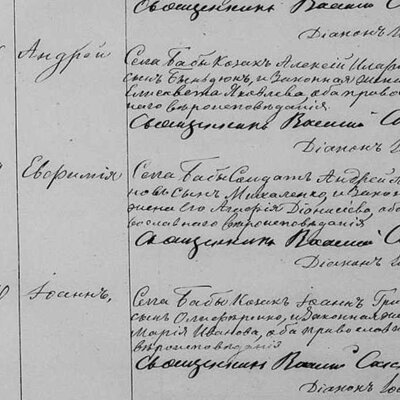 Священникъ Василій
Діаконъ
Андрей
Села Бабы Козакъ Алексѣй Илар
сынъ и законная жена
Елисавета Яковлева, оба право
наго вѣроисповѣданія.
Священникъ Василій
Діаконъ
Евфимія
Села Бабы Солдатъ Андрей
новъ сынъ, Михаленко, и закон
жена его Агафія Діонисіева, оба
вославнаго вѣроисповѣданія
Священникъ Василій
Діаконъ
Іоаннъ,
Села Бабы Козакъ Іоаннъ Гри
сынъ и законная
Марія Иванова, оба православ
вѣроисповѣданія
Священникъ Василій
Діаконъ